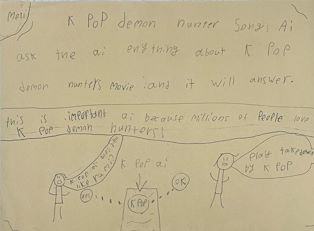 K PoP demon hunter Songs Ai
ask the ai enything about K PoP
demon hunters movie and it will answer.
this is important ai because millions of People love
K Pop demon hunters!
K PoP ai
K PoP ai
like
play takedown
by K PoP
OK
K POP